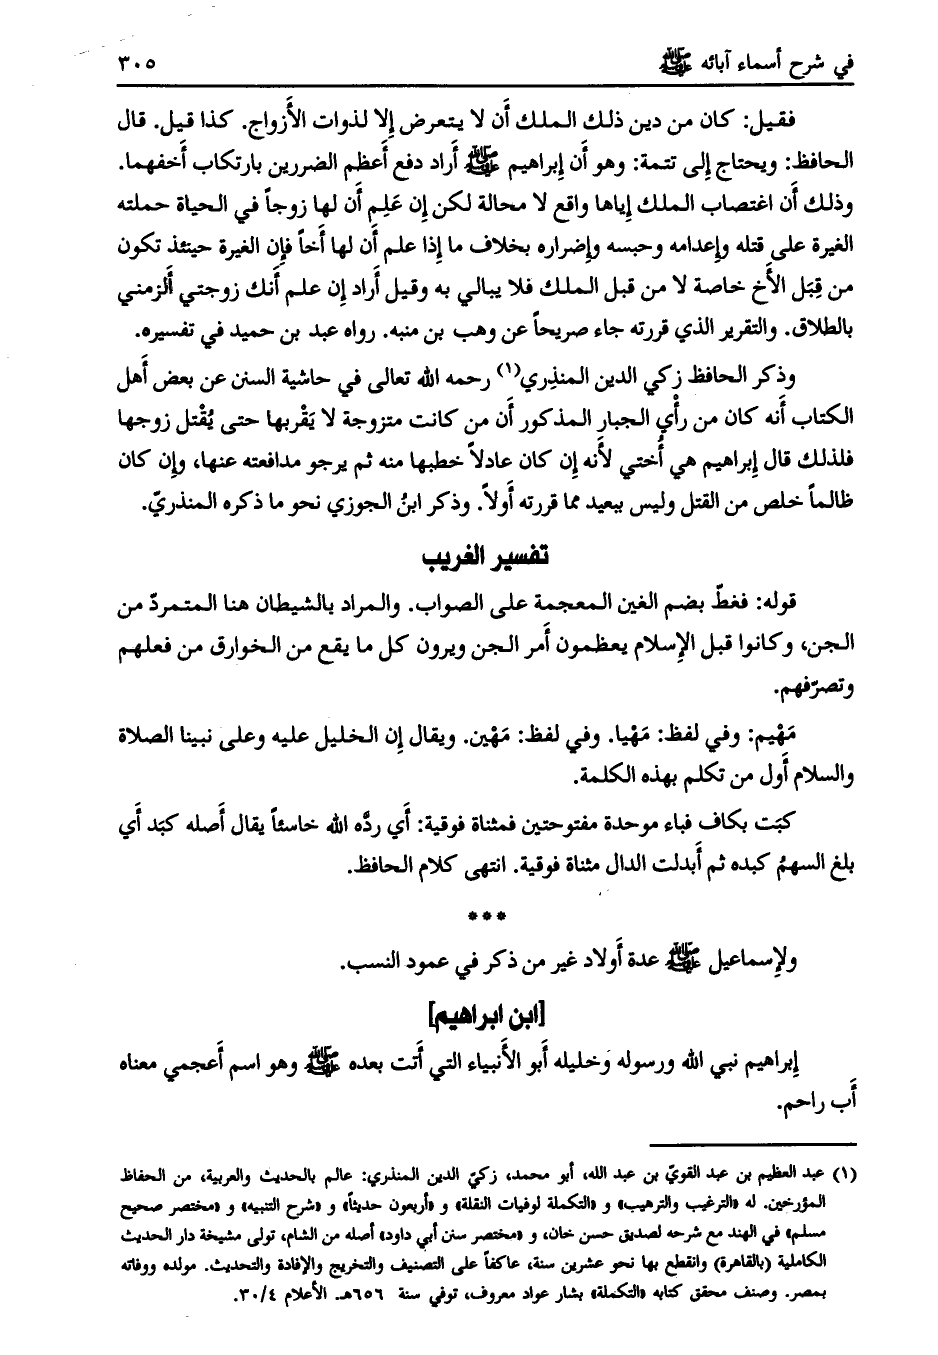 في شرح أسماء آبائه ﷺ ٣٠٥
فقيل: كان من دين ذلك الملك أن لا يتعرض إلا لذوات الأزواج. كذا قيل. قال
الحافظ: ويحتاج إلى تتمة: وهو أن إبراهيم ﷺ أراد دفع أعظم الضررين بارتكاب أخفهما.
وذلك أن اغتصاب الملك إياها واقع لا محالة لكن إن عَلِم أن لها زوجاً في الحياة حملته
الغيرة على قتله وإعدامه وحبسه وإضراره بخلاف ما إذا علم أن لها أخاً فإن الغيرة حينئذ تكون
من قِبَل الأخ خاصة لا من قبل الملك فلا يبالي به وقيل أراد إن علم أنك زوجتي ألزمني
بالطلاق. والتقرير الذي قررته جاء صريحاً عن وهب بن منبه. رواه عبد بن حميد في تفسيره.
وذكر الحافظ زكي الدين المنذِري(١) رحمه الله تعالى في حاشية السنن عن بعض أهل
الكتاب أنه كان من رأي الجبار المذكور أن من كانت متزوجة لا يَقْربها حتى يُقْتل زوجها
فلذلك قال إبراهيم هي أُختي لأنه إن كان عادلاً خطبها منه ثم يرجو مدافعته عنها، وإن كان
ظالماً خلص من القتل وليس ببعيد مما قررته أولاً. وذكر ابنُ الجوزي نحو ما ذكره المنذريّ.
تفسير الغريب
قوله: فغطّ بضم الغين المعجمة على الصواب. والمراد بالشيطان هنا المتمردّ من
الجن، وكانوا قبل الإسلام يعظمون أمر الجن ويرون كل ما يقع من الخوارق من فعلهم
وتصرّفهم.
مَهْيم: وفي لفظ: مَهْيا. وفي لفظ: مَهْين. ويقال إن الخليل عليه وعلى نبينا الصلاة
والسلام أول من تكلم بهذه الكلمة.
كبَت بكاف فباء موحدة مفتوحتين فمثناة فوقية: أي ردَّه الله خاسئاً يقال أصله كبَد أي
بلغ السهمُ كبده ثم أبدلت الدال مثناة فوقية. انتهى كلام الحافظ.
***
ولإسماعيل ﷺ عدة أولاد غير من ذكر في عمود النسب.
[ابن ابراهيم]
إبراهيم نبي الله ورسوله وخليله أبو الأنبياء التي أتت بعده ﷺ وهو اسم أعجمي معناه
أب راحم.
(١) عبد العظيم بن عبد القويّ بن عبد الله، أبو محمد، زكيّ الدين المنذري: عالم بالحديث والعربية، من الحفاظ
المؤرخين. له «الترغيب والترهيب» و «التكملة لوفيات النقلة» و «أربعون حديثاً» و «شرح التنبيه» و «مختصر صحيح
مسلم» في الهند مع شرحه لصديق حسن خان، و «مختصر سنن أبي داود» أصله من الشام، تولى مشيخة دار الحديث
الكاملية (بالقاهرة) وانقطع بها نحو عشرين سنة، عاكفاً على التصنيف والتخريج والإفادة والتحديث. مولده ووفاته
بمصر. وصنف محقق كتابه «التكملة» بشار عواد معروف، توفي سنة ٦٥٦هـ. الأعلام ٣٠/٤.